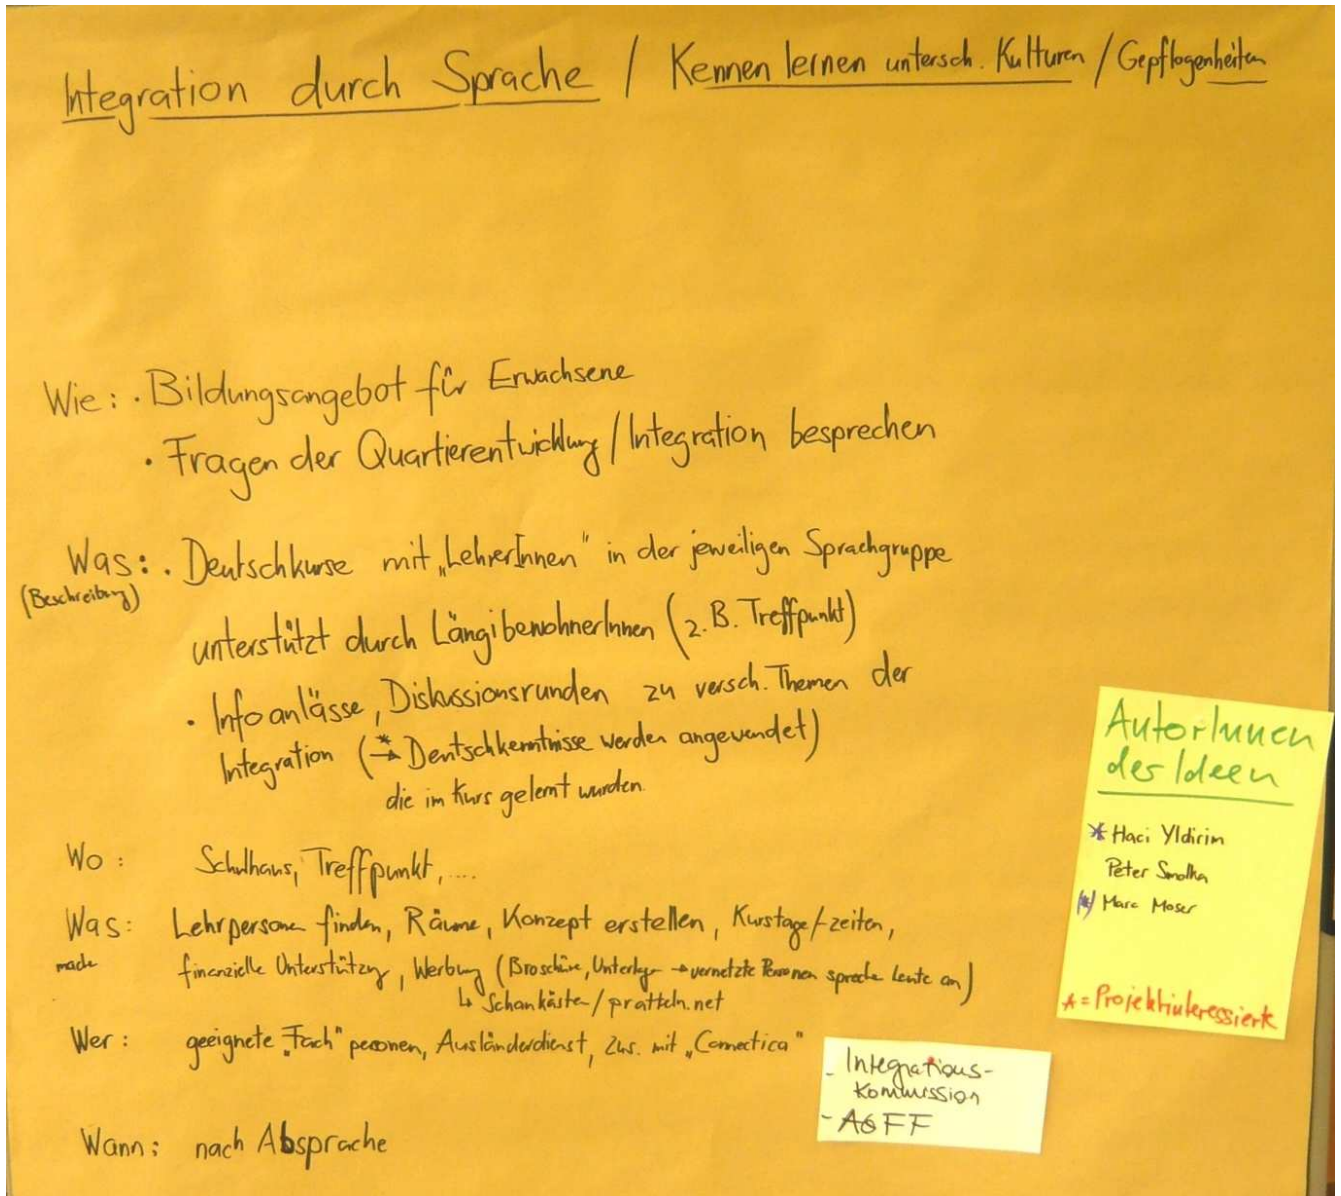 Integration durch Sprache / Kennen lernen untersch. Kulturen / Gepflogenheiten
Wie: · Bildungsangebot für Erwachsene
· Fragen der Quartierentwicklung / Integration besprechen
Was: · Deutschkurse mit „LehrerInnen" in der jeweiligen Sprachgruppe
(Beschreibung)
unterstützt durch LängibewohnerInnen (z.B. Treffpunkt)
· Infoanlässe, Diskussionsrunden zu versch. Themen der
Integration (→* Deutschkenntnisse werden angewendet)
die im Kurs gelernt wurden.
Wo: Schulhaus, Treffpunkt, ....
Was: Lehrpersonen finden, Räume, Konzept erstellen, Kurstage/-zeiten,
mache finanzielle Unterstützung, Werbung (Broschüre, → vernetzte Personen spreche Leute an)
↳ Schaukästen / pratteln.net
Wer: geeignete „Fach" personen, Ausländerdienst, Zus. mit „Connectica"
- Integrations-
kommission
- AGFF
Wann: nach Absprache
AutorInnen
der Ideen
* Haci Yldirim
Peter Smolka
(*) Marc Moser
* = Projektinteressierte